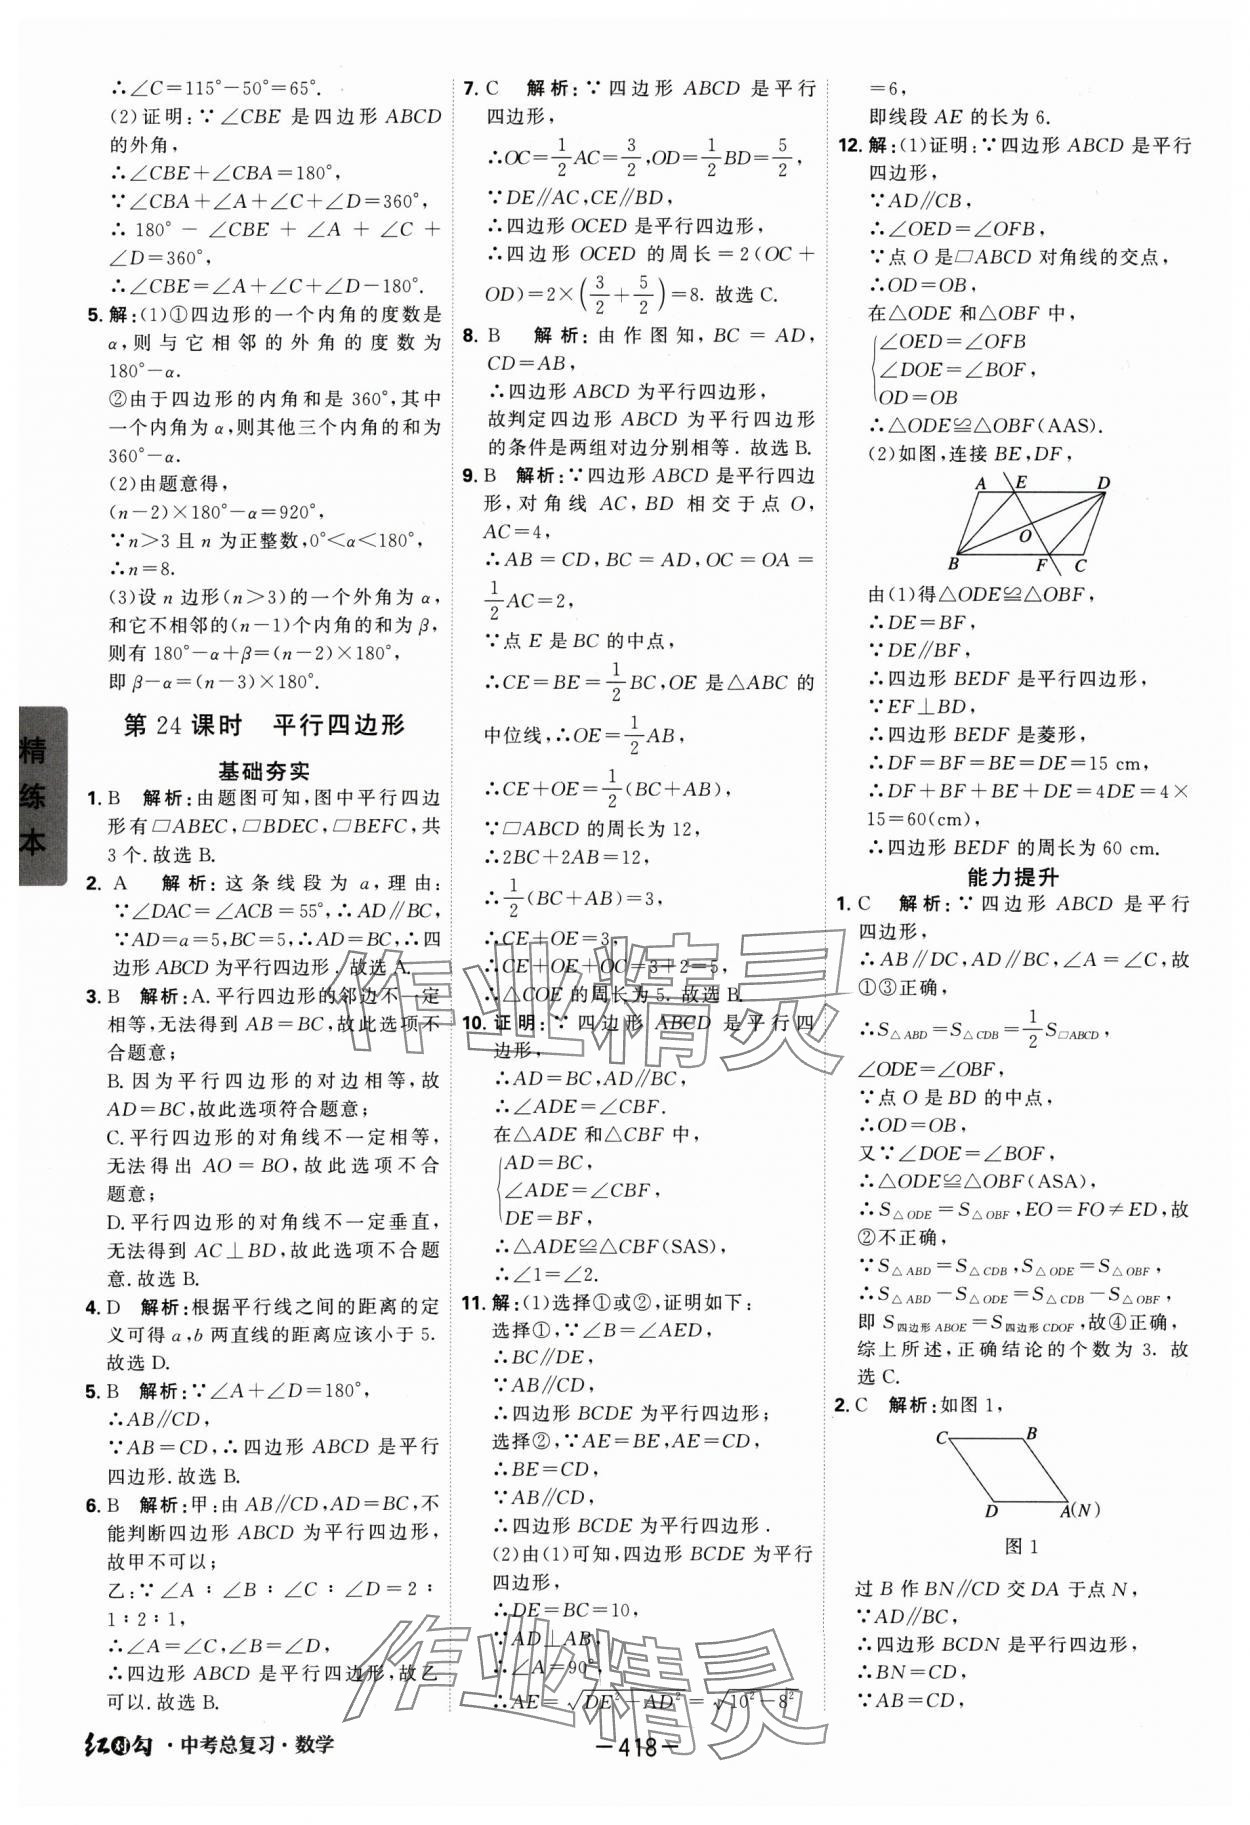 ∴∠C=115°-50°=65°.
(2)证明:∵∠CBE 是四边形 ABCD
的外角,
∴∠CBE+∠CBA=180°,
∵∠CBA+∠A+∠C+∠D=360°,
∴ 180° - ∠CBE + ∠A + ∠C +
∠D=360°,
∴∠CBE=∠A+∠C+∠D-180°.
5. 解:(1)①四边形的一个内角的度数是
α,则与它相邻的外角的度数为
180°-α.
②由于四边形的内角和是 360°,其中
一个内角为 α,则其他三个内角的和为
360°-α.
(2)由题意得,
(n-2)×180°-α=920°,
∵n>3 且 n 为正整数,0°<α<180°,
∴n=8.
(3)设 n 边形(n>3)的一个外角为 α,
和它不相邻的(n-1)个内角的和为 β,
则有 180°-α+β=(n-2)×180°,
即 β-α=(n-3)×180°.
第 24 课时 平行四边形
基础夯实
1. B 解析:由题图可知,图中平行四边
形有□ABEC,□BDEC,□BEFC,共
3 个.故选 B.
2. A 解析:这条线段为 a,理由:
∵∠DAC=∠ACB=55°,∴AD∥BC,
∵AD=a=5,BC=5,∴AD=BC,∴四
边形 ABCD 为平行四边形. 故选 A.
3. B 解析:A.平行四边形的邻边不一定
相等,无法得到 AB=BC,故此选项不
合题意;
B.因为平行四边形的对边相等,故
AD=BC,故此选项符合题意;
C.平行四边形的对角线不一定相等,
无法得出 AO=BO,故此选项不合
题意;
D.平行四边形的对角线不一定垂直,
无法得到 AC⊥BD,故此选项不合题
意.故选 B.
4. D 解析:根据平行线之间的距离的定
义可得 a,b 两直线的距离应该小于 5.
故选 D.
5. B 解析:∵∠A+∠D=180°,
∴AB∥CD,
∵AB=CD,∴四边形 ABCD 是平行
四边形.故选 B.
6. B 解析:甲:由 AB∥CD,AD=BC,不
能判断四边形 ABCD 为平行四边形,
故甲不可以;
乙:∵∠A∶∠B∶∠C∶∠D=2∶
1∶2∶1,
∴∠A=∠C,∠B=∠D,
∴四边形 ABCD 是平行四边形,故乙
可以.故选 B.
7. C 解析:∵四边形 ABCD 是平行
四边形,
∴OC=1/2AC=3/2,OD=1/2BD=5/2,
∵DE∥AC,CE∥BD,
∴四边形 OCED 是平行四边形,
∴四边形 OCED 的周长=2(OC+
OD)=2×(3/2+5/2)=8. 故选 C.
8. B 解析:由作图知,BC=AD,
CD=AB,
∴四边形 ABCD 为平行四边形,
故判定四边形 ABCD 为平行四边形
的条件是两组对边分别相等.故选 B.
9. B 解析:∵四边形 ABCD 是平行四边
形,对角线 AC,BD 相交于点 O,
AC=4,
∴AB=CD,BC=AD,OC=OA=
1/2AC=2,
∵点 E 是 BC 的中点,
∴CE=BE=1/2BC,OE 是△ABC 的
中位线,∴OE=1/2AB,
∴CE+OE=1/2(BC+AB),
∵□ABCD 的周长为 12,
∴2BC+2AB=12,
∴1/2(BC+AB)=3,
∴CE+OE=3,
∴CE+OE+OC=3+2=5,
∴△COE 的周长为 5. 故选 B.
10. 证明:∵四边形 ABCD 是平行四
边形,
∴AD=BC,AD∥BC,
∴∠ADE=∠CBF.
在△ADE 和△CBF 中,
AD=BC,
∠ADE=∠CBF,
DE=BF,
∴△ADE≌△CBF(SAS),
∴∠1=∠2.
11. 解:(1)选择①或②,证明如下:
选择①,∵∠B=∠AED,
∴BC∥DE,
∵AB∥CD,
∴四边形 BCDE 为平行四边形;
选择②,∵AE=BE,AE=CD,
∴BE=CD,
∵AB∥CD,
∴四边形 BCDE 为平行四边形.
(2)由(1)可知,四边形 BCDE 为平行
四边形,
∴DE=BC=10,
∵AD⊥AB,
∴∠A=90°,
∴AE=√(DE²-AD²)=√(10²-8²)
=6,
即线段 AE 的长为 6.
12. 解:(1)证明:∵四边形 ABCD 是平行
四边形,
∵AD∥CB,
∴∠OED=∠OFB,
∵点 O 是□ABCD 对角线的交点,
∴OD=OB,
在△ODE 和△OBF 中,
∠OED=∠OFB
∠DOE=∠BOF,
OD=OB
∴△ODE≌△OBF(AAS).
(2)如图,连接 BE,DF,
A E D
O
B F C
由(1)得△ODE≌△OBF,
∴DE=BF,
∵DE∥BF,
∴四边形 BEDF 是平行四边形,
∵EF⊥BD,
∴四边形 BEDF 是菱形,
∴DF=BF=BE=DE=15 cm,
∴DF+BF+BE+DE=4DE=4×
15=60(cm),
∴四边形 BEDF 的周长为 60 cm.
能力提升
1. C 解析:∵四边形 ABCD 是平行
四边形,
∴AB∥DC,AD∥BC,∠A=∠C,故
①③正确,
∴S△ABD=S△CDB=1/2S□ABCD,
∠ODE=∠OBF,
∵点 O 是 BD 的中点,
∴OD=OB,
又∵∠DOE=∠BOF,
∴△ODE≌△OBF(ASA),
∴S△ODE=S△OBF,EO=FO≠ED,故
②不正确,
∵S△ABD=S△CDB,S△ODE=S△OBF,
∴S△ABD-S△ODE=S△CDB-S△OBF,
即 S四边形ABOE=S四边形CDOF,故④正确,
综上所述,正确结论的个数为 3. 故
选 C.
2. C 解析:如图 1,
C B
D A(N)
图 1
过 B 作 BN∥CD 交 DA 于点 N,
∵AD∥BC,
∴四边形 BCDN 是平行四边形,
∴BN=CD,
∵AB=CD,
精练本
作业精灵
作业精灵
红对勾·中考总复习·数学
－418－